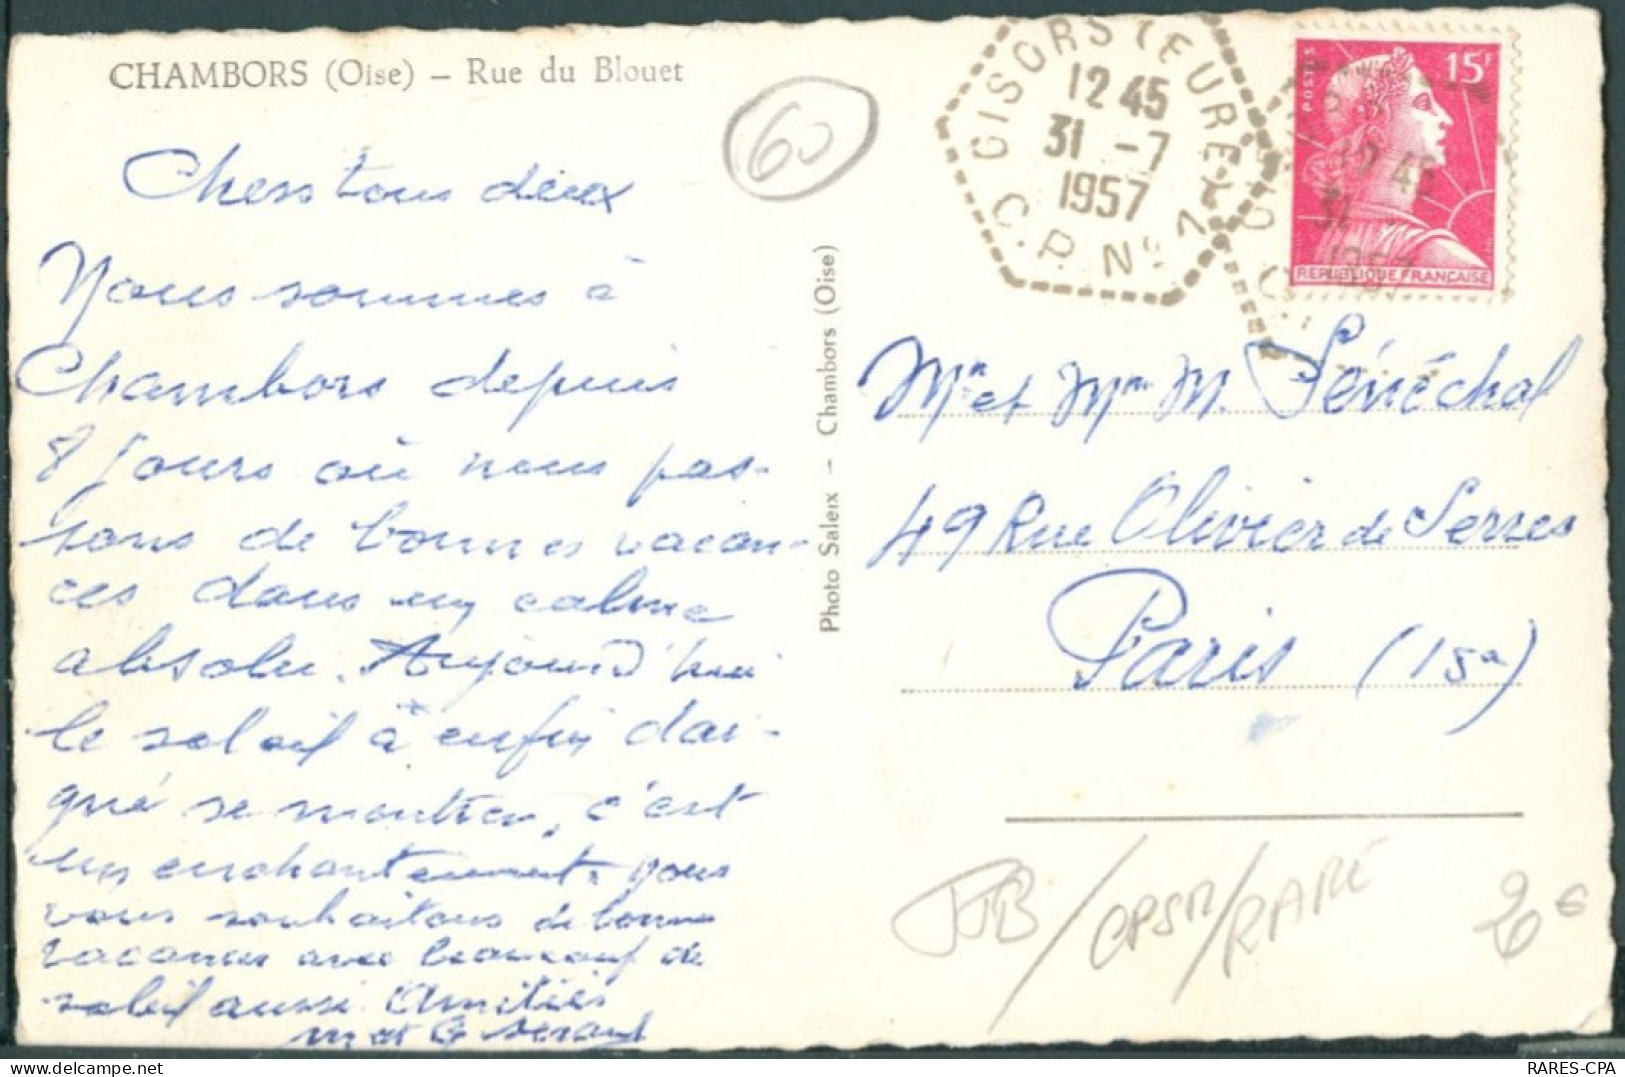 CHAMBORS (Oise) – Rue du Blouet
60
Chers tous deux
Nous sommes à
Chambors depuis
8 jours où nous pas-
sons de bonnes vacan-
ces dans un calme
absolu. Aujourd'hui
le soleil à enfin dai-
gné se montrer, c'est
un enchantement. Nous
vous souhaitons de bonnes
vacances avec beaucoup de
soleil aussi. Amitiés
Photo Saleix – Chambors (Oise)
GISORS (EURE)
12 45
31 -7
1957
C.P. N° 1
POSTES
15F
REPUBLIQUE FRANÇAISE
12 45
31
1957
Mr et Mme M. Sénéchal
49 Rue Olivier de Serres
Paris (15e)
TB/CPSM/RARE
RARES-CPA